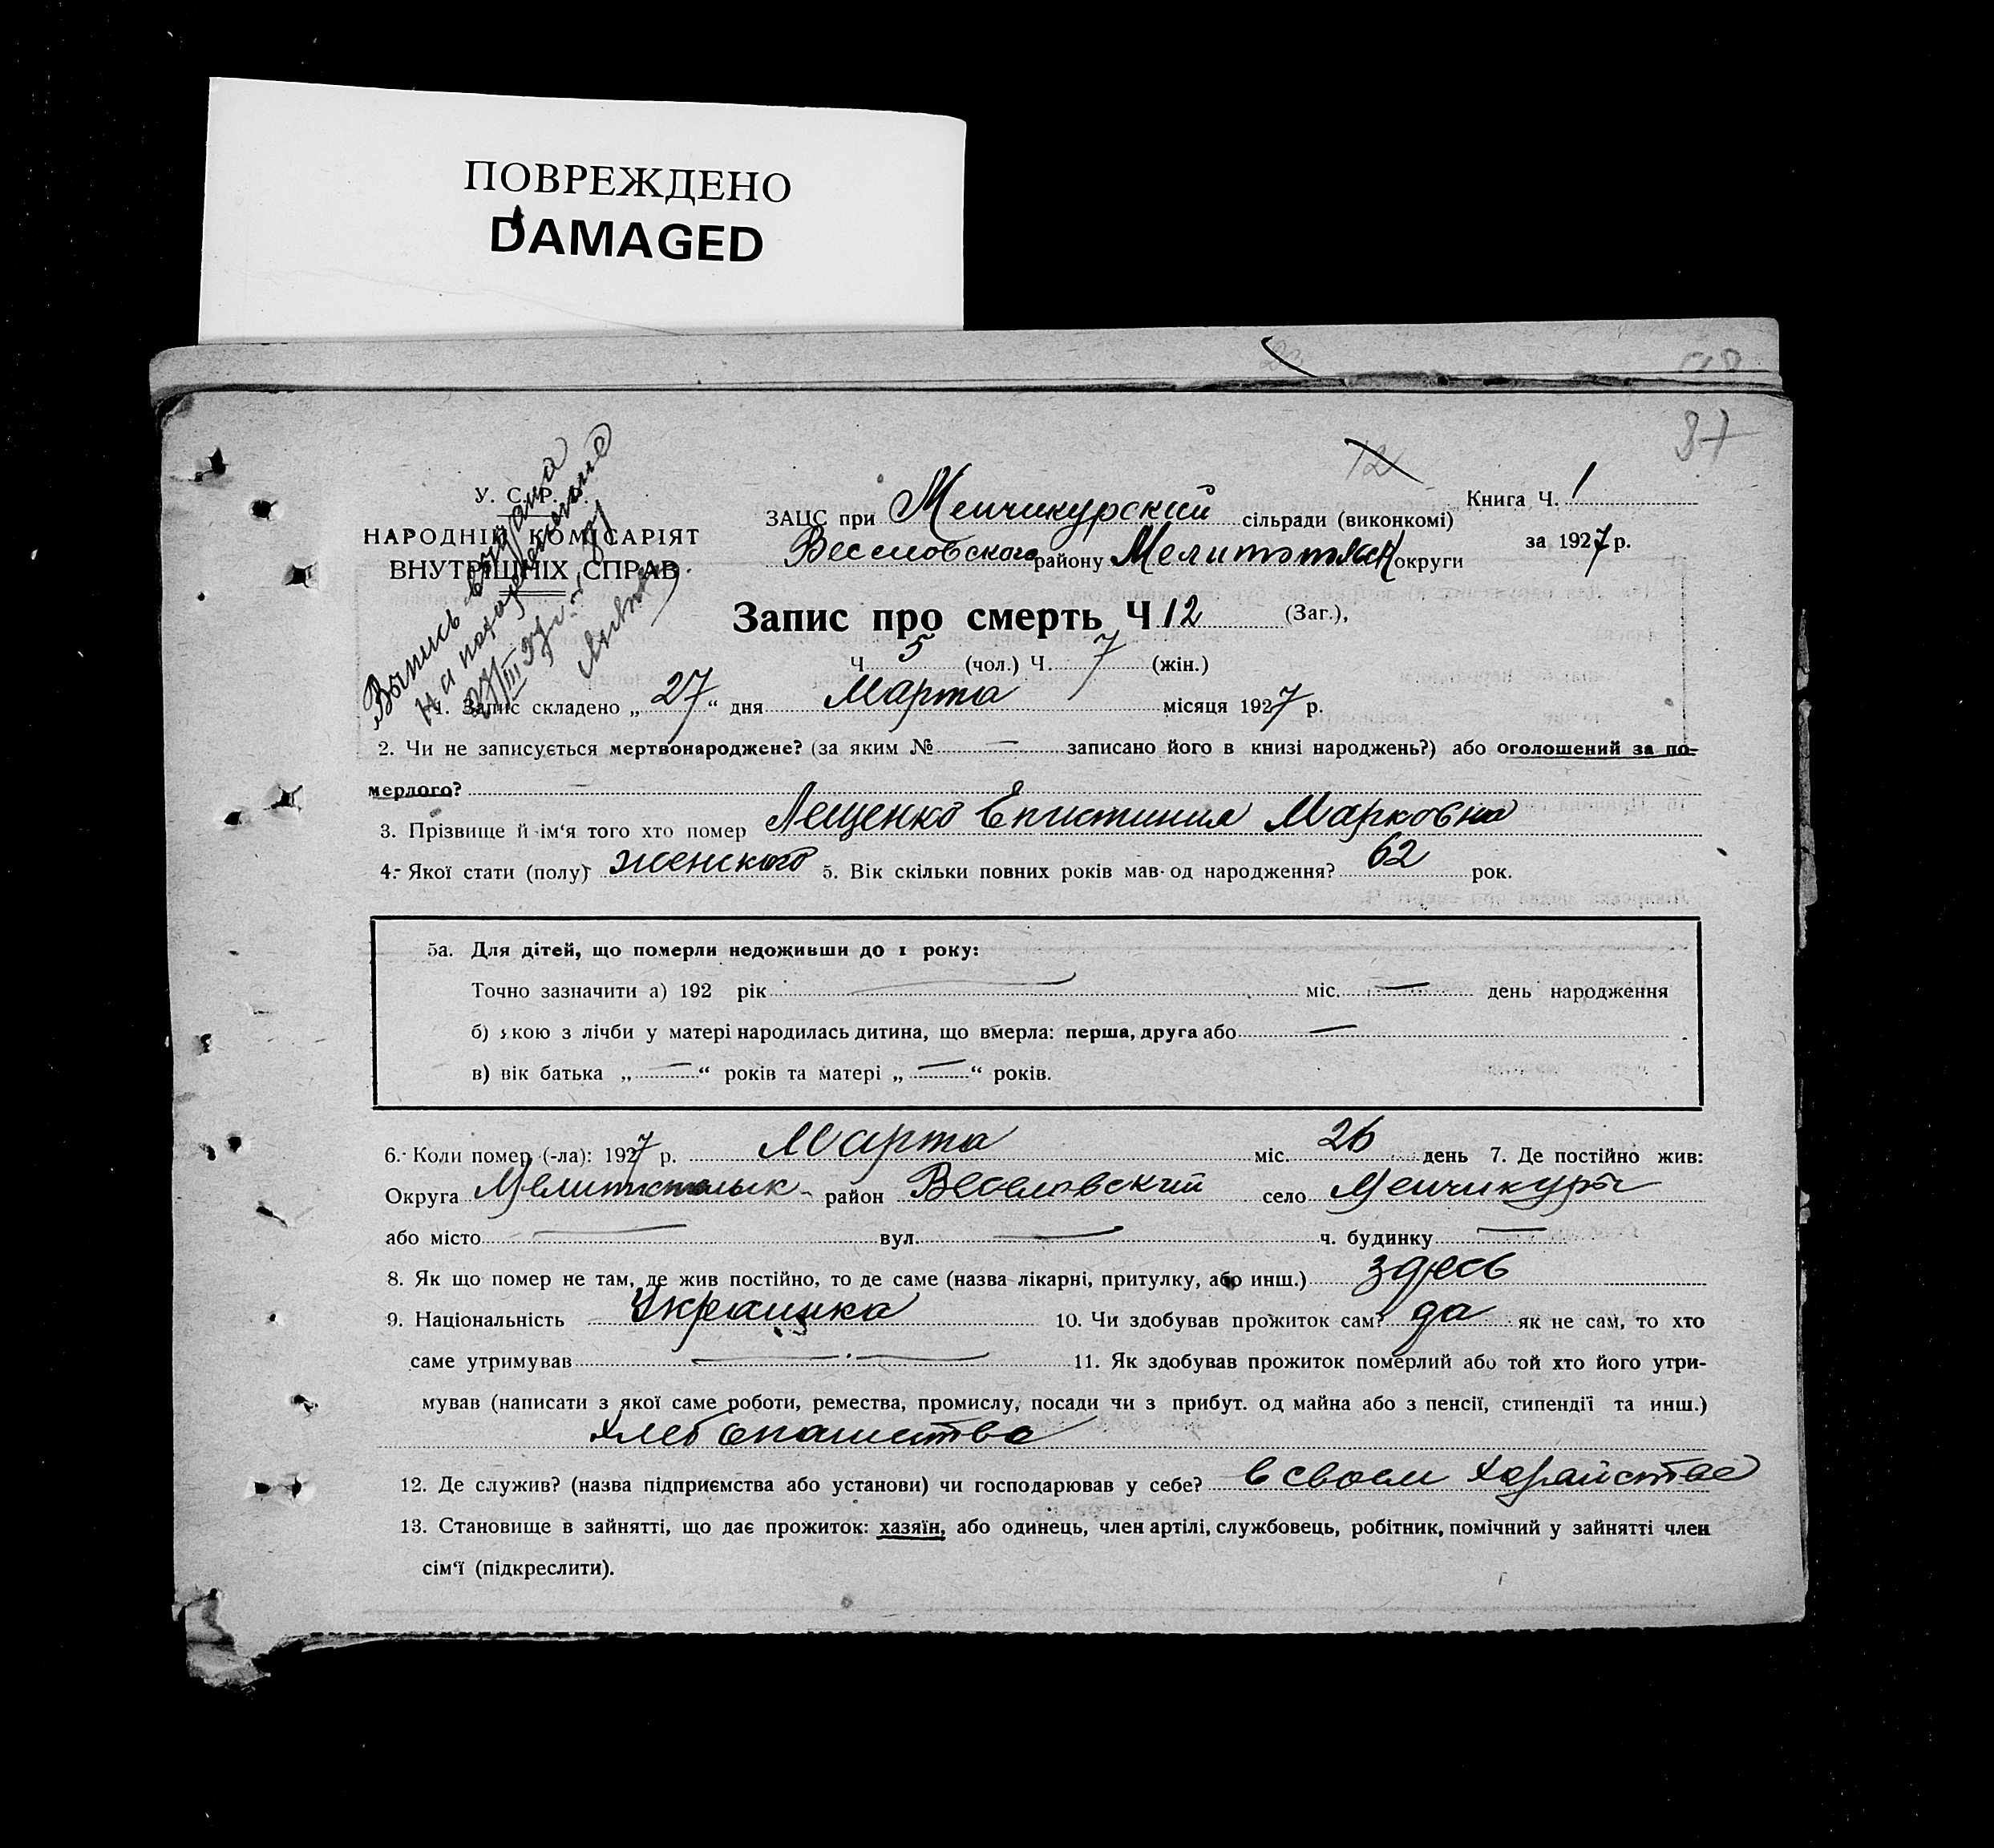 ПОВРЕЖДЕНО
DAMAGED
37
12
У. С. Р. Р.
НАРОДНІЙ КОМІСАРІЯТ
ВНУТРІШНІХ СПРАВ
Выпись выдана
на похоронение
27/III 27 г.
ЗАЦС при Менчикурский сільради (виконкомі)
Веселовского району Мелитоп округи
Книга Ч. 1
за 1927 р.
Запис про смерть Ч 12 (Заг.),
Ч 5 (чол.) Ч. 7 (жін.)
1. Запис складено „ 27 “ дня Марта місяця 1927 р.
2. Чи не записується мертвонароджене? (за яким № — записано його в книзі народжень?) або оголошений за по-
мерлого? —
3. Прізвище й ім‘я того хто помер Лещенко Епистиния Марковна
4. Якої стати (полу) женского 5. Вік скільки повних років мав од народження? 62 рок.
5а. Для дітей, що померли недоживши до 1 року:
Точно зазначити а) 192 рік — міс. — день народження
б) якою з лічби у матері народилась дитина, що вмерла: перша, друга або —
в) вік батька „ — “ років та матері „ — “ років.
6. Коли помер (-ла): 1927 р. Марта міс. 26 день 7. Де постійно жив:
Округа район Веселовский село Менчикуры
або місто — вул. — ч. будинку —
8. Як що помер не там, де жив постійно, то де саме (назва лікарні, притулку, або инш.) здесь
9. Національність Украинка 10. Чи здобував прожиток сам? да як не сам, то хто
саме утримував — 11. Як здобував прожиток померлий або той хто його утри-
мував (написати з якої саме роботи, ремества, промислу, посади чи з прибут. од майна або з пенсії, стипендії та инш.)
хлебопашество
12. Де служив? (назва підприємства або установи) чи господарював у себе? в своем хозяйстве
13. Становище в зайнятті, що дає прожиток: хазяїн, або одинець, член артілі, службовець, робітник, помічний у зайнятті член
сім‘ї (підкреслити).